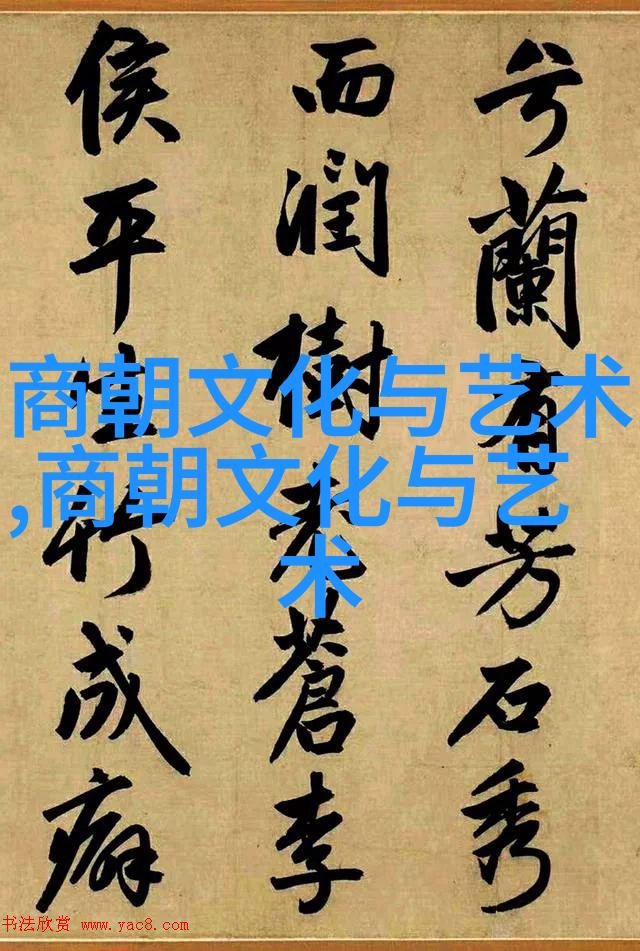 兮蘭有芳石秀
而潤樹老蒼李
侯平生竹成癖
商朝文化与艺术
,商朝文化与艺
术
书法欣赏 www.yac8.com